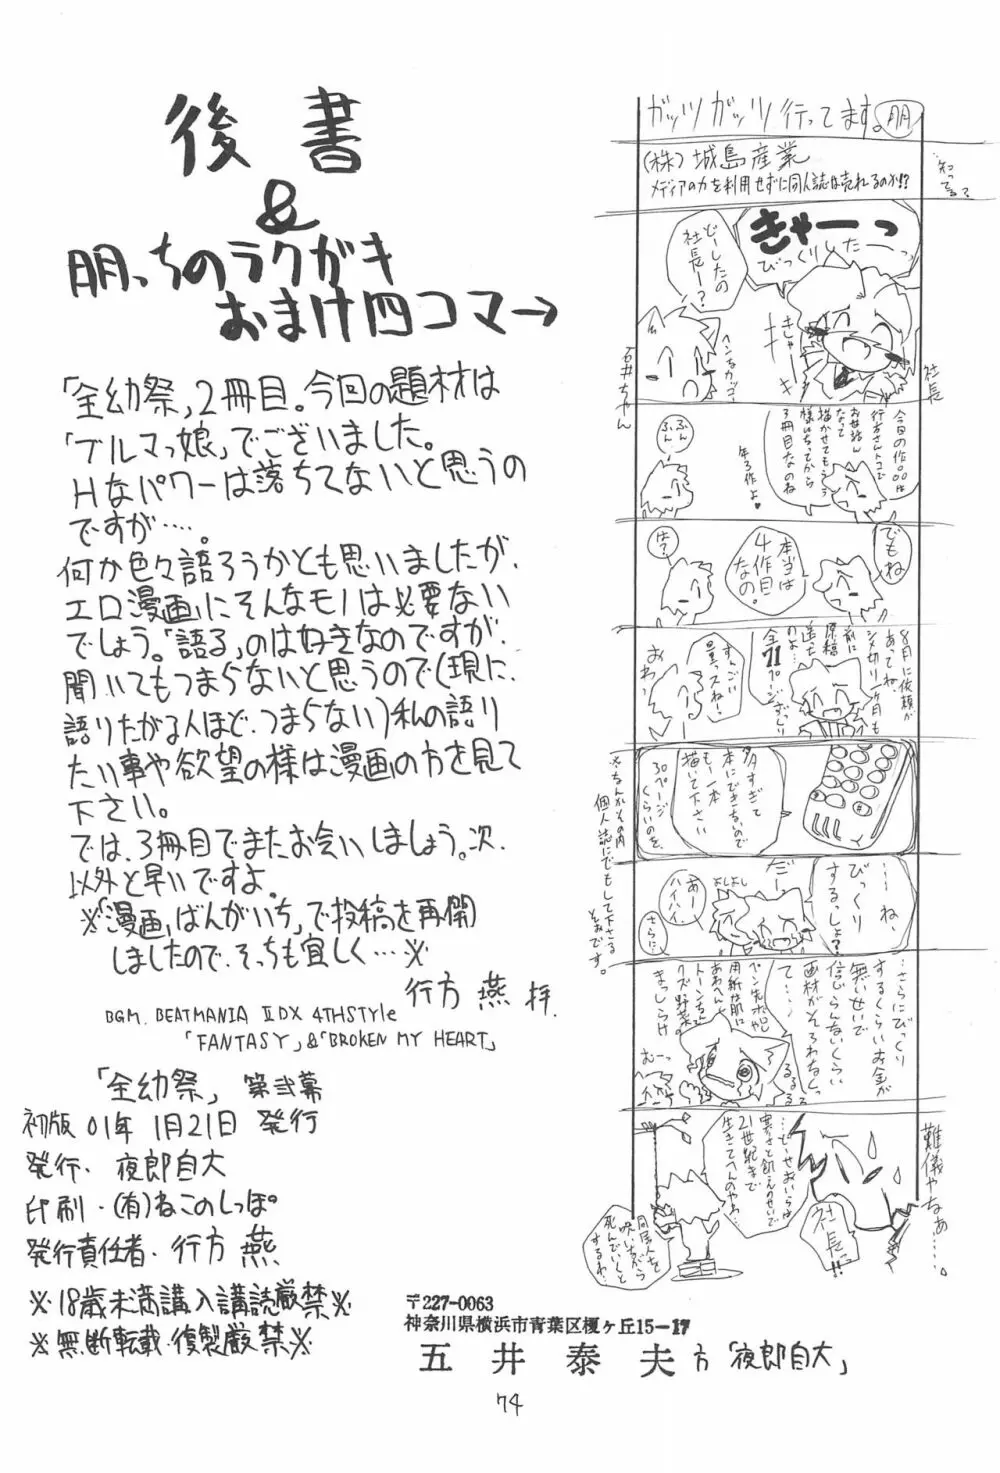 後書
&
朋っちのラクガキ
おまけ四コマ→
「全幼祭」2冊目。今回の題材は
「ブルマっ娘」でございました。
Hなパワーは落ちてないと思うの
ですが‥‥。
何か色々語ろうかとも思いましたが、
エロ漫画にそんなモノは必要ない
でしょう。「語る」のは好きなのですが、
聞いてもつまらないと思うので(現に、
語りたがる人ほど、つまらない)私の語り
たい事や欲望の様は漫画の方を見て
下さい。
では、3冊目でまたお会いしましょう。次、
以外と早いですよ。
※「漫画ばんがいち」で投稿を再開
しましたので、そっちも宜しく…※
行方 燕 拝.
BGM. BEATMANIA ⅡDX 4THStyle
「FANTASY」&「BROKEN MY HEART」
「全幼祭」 第弐幕
初版 01年 1月21日 発行
発行・夜郎自大
印刷・(有)ねこのしっぽ
発行責任者・行方 燕
※18歳未満購入購読厳禁※
※無断転載・複製厳禁※
ガッツガッツ行ってます。朋
(株)城島産業
メディアの力を利用せずに同人誌は売れるのか!?
知ってる?
きゃーっ
びっくりしたーっ
どーしたの
社長ー?
社長
石井ちゃん
今回の作品は
行方さんトコで
お世話ん
なって
描かせてもらう
様になってから
3冊目なのね
ふん
ふん
年3作よ♥
でもね
本当は
4作目
なの。
は?
8月に依頼が
あってね、
シメ切り一ヶ月も
前に
原稿
送った
のよ…
全71ページびっしり
すんごい
量っスねー。
おわー
多すぎて
本にできないので
もー一本
描いて下さい
30ページ
くらいのを、
※なんかその内
個人誌にでもして下さる
そおです。
…ね、
びっくり
するっしょ?
だー
よしよし
あー
ハイハイ
さらに、
…さらにびっくり
するくらいお金が
無いせいで
信じらんないくらい
画材がそろわなくっ
て‥‥
るるる
むーっ
難儀やなぁ……
社長っ!!
…どーせおいらは
寒さと飢えのせいで
21世紀まで
生きてへんのやわ…
同居人を
呪いながら
死んでいくと
するわ…
〒227-0063
神奈川県横浜市青葉区榎ヶ丘15-17
五井泰夫方「夜郎自大」
74